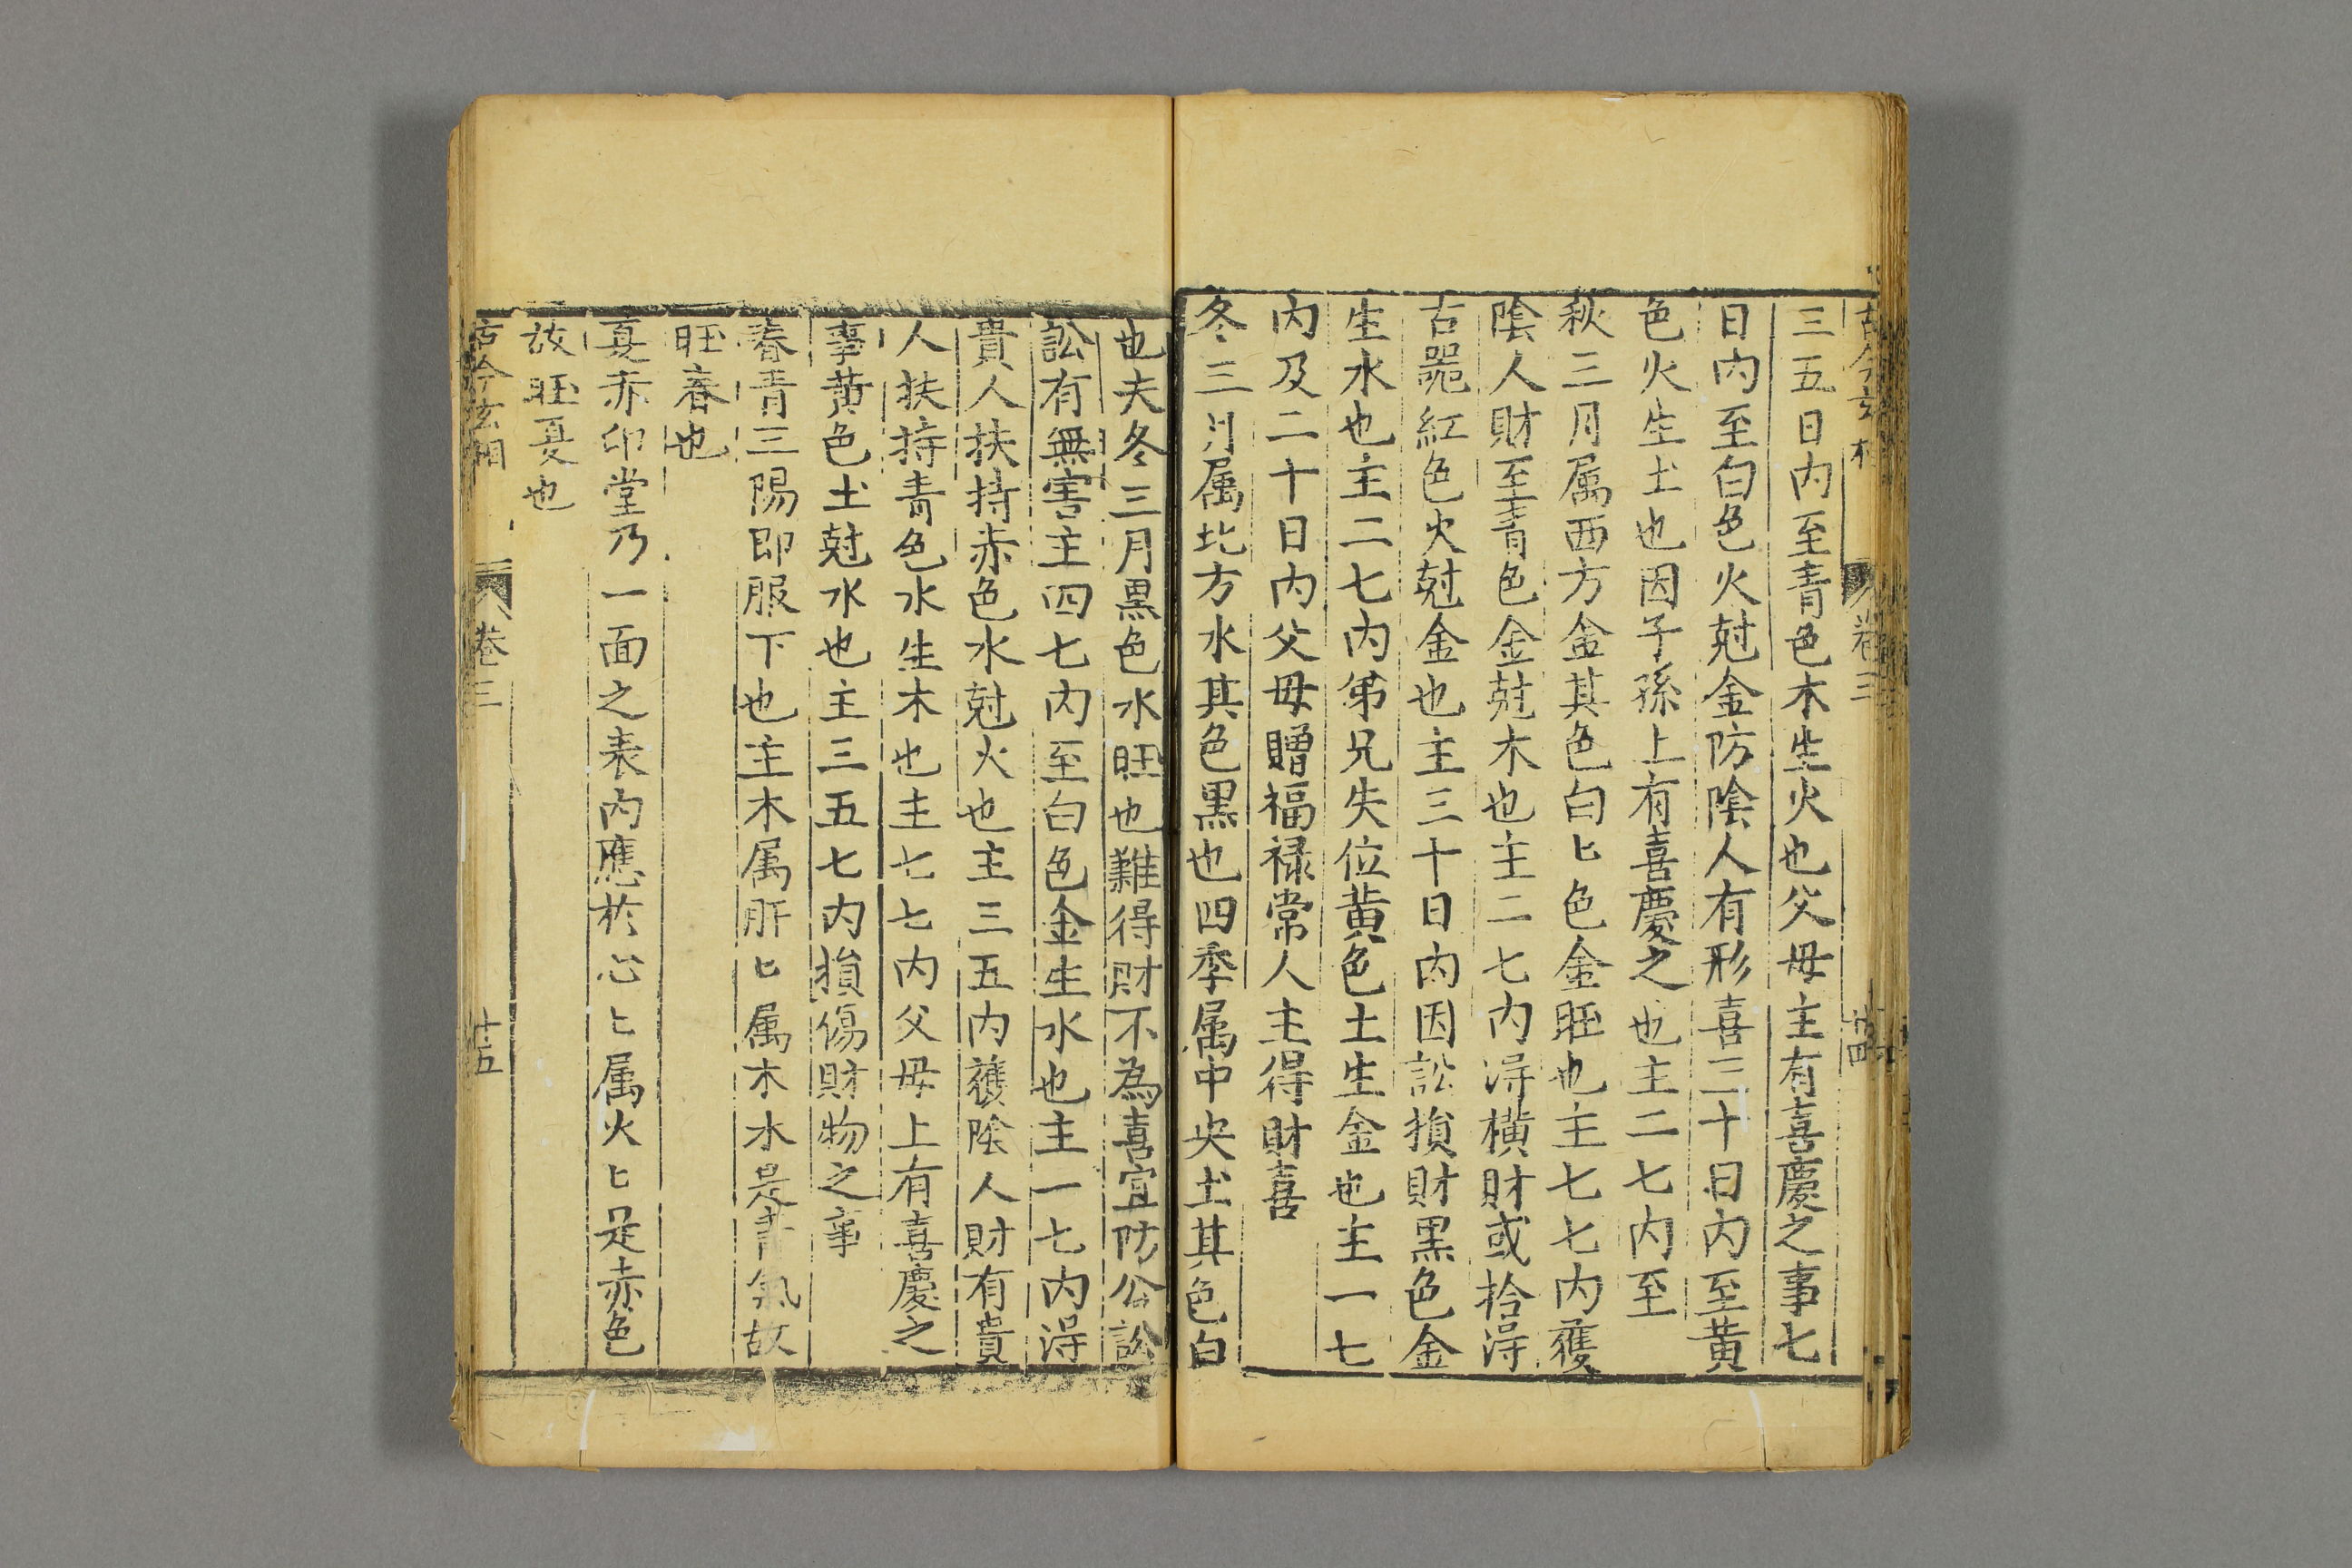 古今玄相 卷三 十四
三五日内至青色木生火也父母主有喜慶之事七
日内至白色火尅金防陰人有形喜三十日内至黄
色火生土也因子孫上有喜慶之也主二七内至
秋三月属西方金其色白匕色金旺也主七七内獲
陰人財至青色金尅木也主二七内淂横財或拾淂
古噐紅色火尅金也主三十日内因訟損財黒色金
生水也主二七内弟兄失位黄色土生金也主一七
内及二十日内父母贈福禄常人主得財喜
冬三月属北方水其色黒也四季属中央土其色白
也夫冬三月黒色水旺也難得財不為喜宜防公訟
訟有無害主四七内至白色金生水也主一七内淂
貴人扶持赤色水尅火也主三五内獲陰人財有貴
人扶持青色水生木也主七七内父母上有喜慶之
事黄色土尅水也主三五七内損傷財物之事
春青三陽即服下也主木属肝匕属木水是青氣故
旺春也
夏赤印堂乃一面之表内應於心匕属火匕是赤色
故旺夏也
古今玄相 卷三 十五